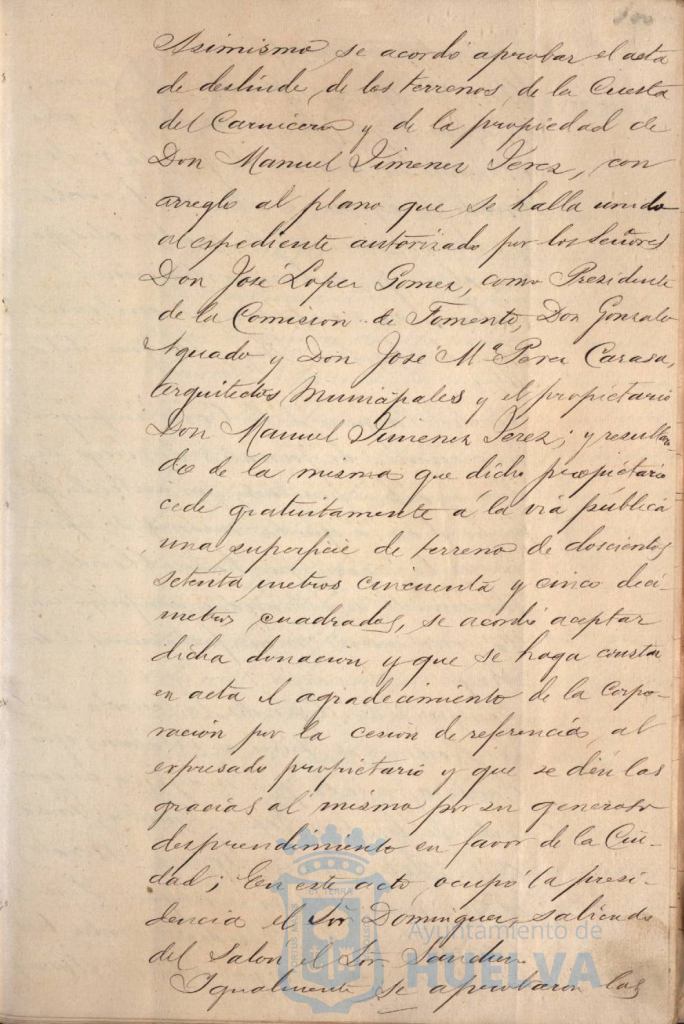 100
Asimismo se acordó aprobar el acta
de deslinde de los terrenos de la Cuesta
del Carnicero y de la propiedad de
Don Manuel Jimenez Perez, con
arreglo al plano que se halla unido
al espediente autorizado por los Señores
Don José Lopez Gomez, como Presidente
de la Comision de Fomento, Don Gonzalo
Aguado y Don José Mª Perez Carasa,
arquitectos Municipales y el propietario
Don Manuel Jimenez Perez; y resultan-
do de la misma que dicho propietario
cede gratuitamente á la via publica
una superficie de terreno de doscientos
setenta metros cincuenta y cinco deci-
metros cuadrados, se acordó aceptar
dicha donacion y que se haga constar
en acta el agradecimiento de la Corpo-
ración por la cesion de referencia al
expresado propietario y que se dén las
gracias al mismo por su generoso
desprendimiento en favor de la Ciu-
dad; En este acto, ocupó la presi-
dencia el Sor Dominguez, saliendo
del Salon el Sor Sanchez.
Igualmente se aprobaron las
Ayuntamiento de
HUELVA